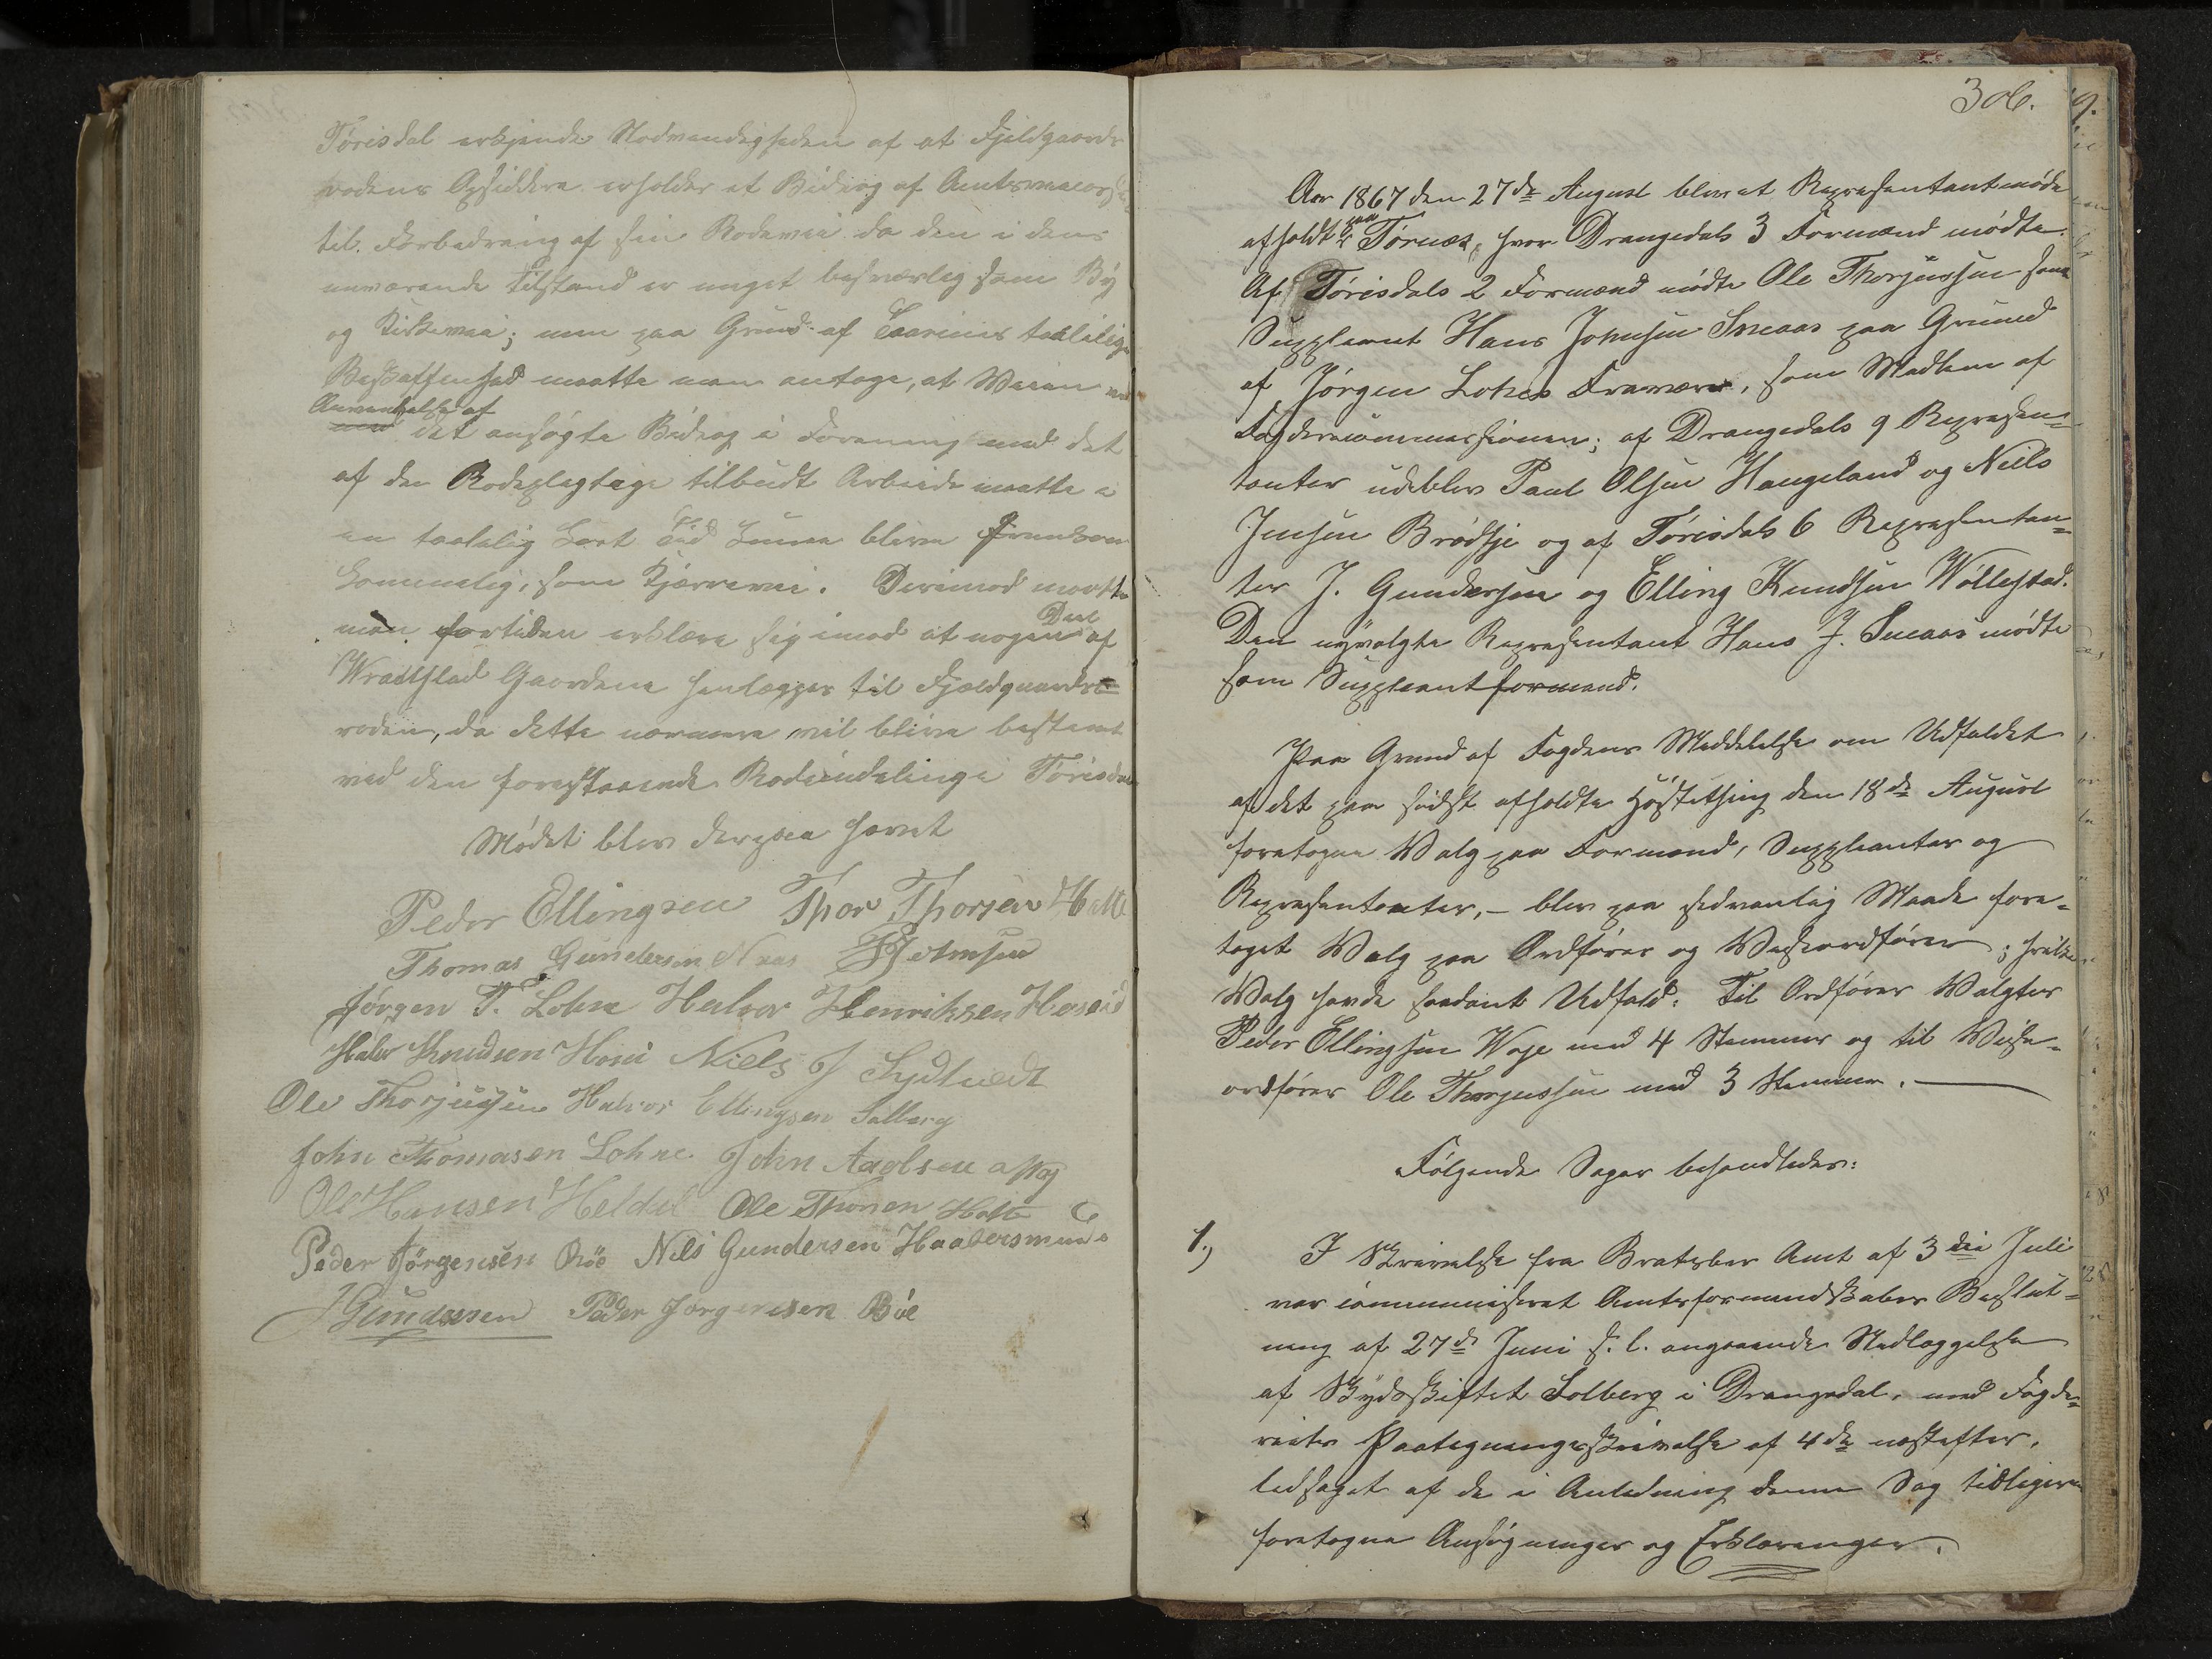 Tørisdal erkjende Nødvendigheden af at Fjeldgaards
rodens Opsiddere erholder et Bidrag af Amtsveicasse
til Forbedring af sin Rodevei da den i dens
nuværende Tilstand er meget besværlig som By
og Kirkevei; men paa Grund af Terrænets taalelige
Beskaffenhed maatte man antage, at Veien ved
Anvendelse af
det ansøgte Bidrag i Forening med det
af de Rodepligtige tilbudt Arbeide maatte i
en taalelig kort Tid kunne blive fremkom
kommelig, som Kjørrevei. Derimod maatte
man fortiden erklære sig imod at nogen Deel af
Wraalstad Gaardene henlægges til Fjeldgaards-
roden, da dette nærmere vil blive bestemt
ved den forestaaende Rodeinddeling i Tørisdal
Mødet blev derpaa hævet
Peder Ellingsen Thor Thorsen Holte
Thomas Gundersen Næs Johnsen
Jørgen T. Lohne Halvor Henriksen Heseid
Halvor Knudsen Niels J
Ole Thorjussen Halvor Ellingsen Solberg
John Thomasen Lohne John Aadsen
Ole Hansen Heldal Ole Thorsen Holte
Peder Jørgensen Boe Nils Gundersen
J Gundersen Peder Jørgensen Bøe
306.
Aar 1867 den 27de August blev et Repræsentantmøde
afholdt paa Tørnæs, hvor Drangedals 3 Formænd mødte.
Af Tørisdals 2 Formænd mødte Ole Thorjussen samt
Suppleant Hans Johnsen Sneaas paa Grund
af Jørgen Lohnes Fravære, som Medlem af
Fogdericommissionen; af Drangedals 9 Repræsen=
tanter udeblev Paul Olsen Haugeland og Niels
Jensen Brødsje og af Tørisdals 6 Repræsentan=
ter J. Gundersen og Elling Knudsen Wøllestad.
Den nyvalgte Repræsentant Hans J. Sneaas mødte
som Suppleant formand.
Paa Grund af Fogdens Meddelelse om Udfaldet
af det paa sidst afholdte Høstething den 18de August
foretagne Valg paa Formænd, Suppleanter og
Repræsentanter, – blev paa sedvanlig Maade fore=
taget Valg paa Ordfører og Viceordfører; hvilke
Valg havde saadant Udfald: Til Ordfører Valgtes
Peder Ellingsen Woje med 4 Stemmer og til Vice=
ordfører Ole Thorjussen med 3 Stemmer.
Følgende Sager behandledes:
1.) I Skrivelse fra Bratsberg Amt af 3die Juli
var communiseret Amtsformandskabets Beslut=
ning af 27de Juni s. l. angaaende Nedlæggelse
af Skydsskiftet Solberg i Drangedal, med Fogde=
riets Paategningsskrivelse af 4de næstefter,
ledsaget af de i Anledning denne Sag tidligere
foretagne Ansøgninger og Erklæringer.